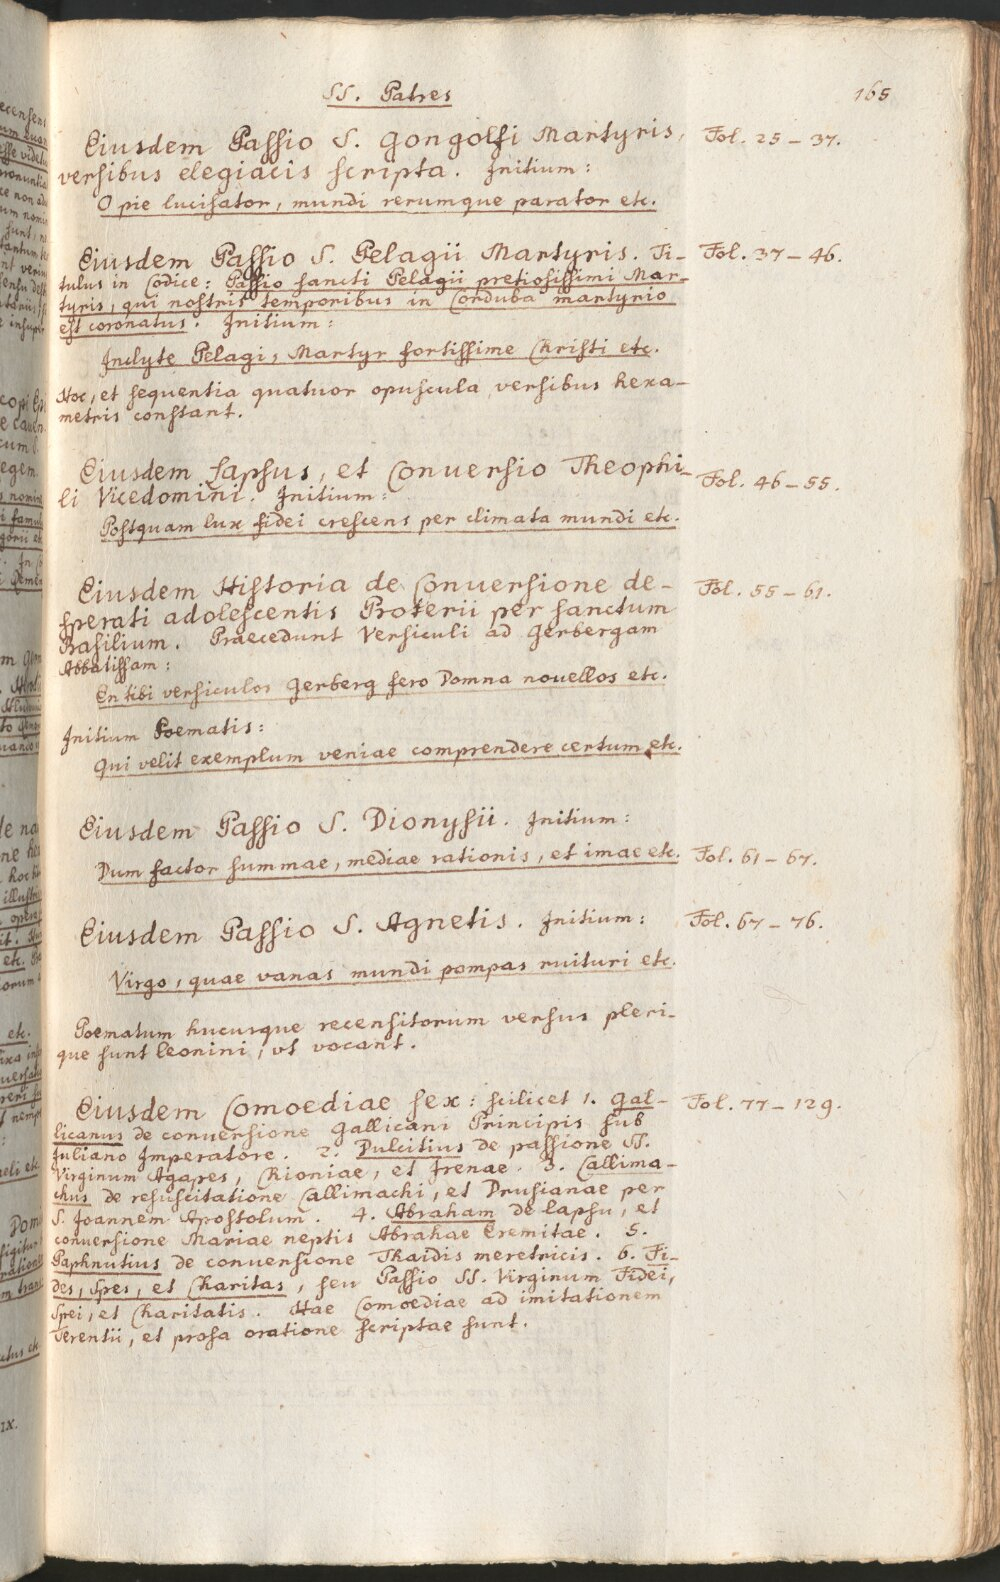 SS. Patres
165
Eiusdem Passio S. Gongolfi Martyris,
Fol. 25 – 37.
versibus elegiacis scripta. Initium:
O pie lucisator, mundi rerumque parator etc.
Eiusdem Passio S. Pelagii Martyris. Ti-
Fol. 37 – 46.
tulus in Codice: Passio sancti Pelagii pretiosissimi Mar-
tyris, qui nostris temporibus in Corduba martyrio
est coronatus. Initium:
Inclyte Pelagi, Martyr fortissime Christi etc.
Hoc, et sequentia quatuor opuscula versibus hexa-
metris constant.
Eiusdem Lapsus, et Conuersio Theophi-
Fol. 46 – 55.
li Vicedomini. Initium:
Postquam lux fidei crescens per climata mundi etc.
Eiusdem Historia de Conuersione de-
Fol. 55 – 61.
sperati adolescentis Proterii per sanctum
Basilium. Praecedunt Versiculi ad Gerbergam
Abbatissam:
En tibi versiculos Gerberg fero Domna nouellos etc.
Initium Poematis:
Qui velit exemplum veniae comprendere certum etc.
Eiusdem Passio S. Dionysii. Initium:
Dum factor summae, mediae rationis, et imae etc.
Fol. 61 – 67.
Eiusdem Passio S. Agnetis. Initium:
Fol. 67 – 76.
Virgo, quae vanas mundi pompas ruituri etc.
Poematum hucusque recensitorum versus pleri-
que sunt leonini, vt vocant.
Eiusdem Comoediae sex: scilicet 1. Gal-
Fol. 77 – 129.
licanus de conuersione Gallicani Principis sub
Iuliano Imperatore. 2. Dulcitius de passione SS.
Virginum Agapes, Chioniae, et Irenae. 3. Callima-
chus de resuscitatione Callimachi, et Drusianae per
S. Joannem Apostolum. 4. Abraham de lapsu, et
conuersione Mariae neptis Abrahae Eremitae. 5.
Paphnutius de conuersione Thaidis meretricis. 6. Fi-
des, Spes, et Charitas, seu Passio SS. Virginum Fidei,
Spei, et Charitatis. Hae Comoediae ad imitationem
Terentii, et prosa oratione scriptae sunt.